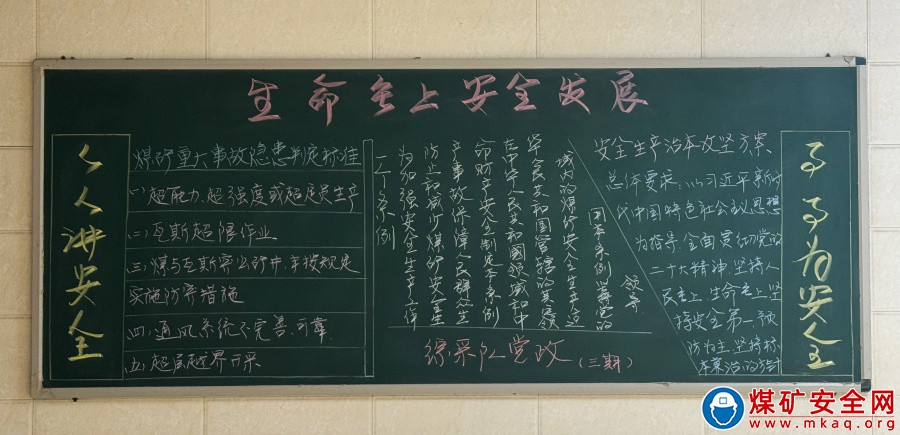 生命至上安全发展
人人讲安全
煤矿重大事故隐患判定标准
(一)超能力、超强度或超定员生产
(二)瓦斯超限作业
(三)煤与瓦斯突出矿井,未按规定
实施防突措施
(四)通风系统不完善、可靠
(五)超层越界开采
二十条例
为加强安全生产工作
防止和减少煤矿安全生
产事故保障人民群众生
命财产安全制定本条例
在中华人民共和国领域和中
华人民共和国管辖的其它领
域内的煤矿安全生产适
用本条例坚持党的
领导
综采队党政(三期)
安全生产治本攻坚方案
总体要求:以习近平新时
代中国特色社会主义思想
为指导,全面贯彻党的
二十大精神,坚持人
民至上,生命至上,坚
持安全第一,预
防为主,坚持标
本兼治的方针
事事为安全
煤矿安全网
www.mkaq.org